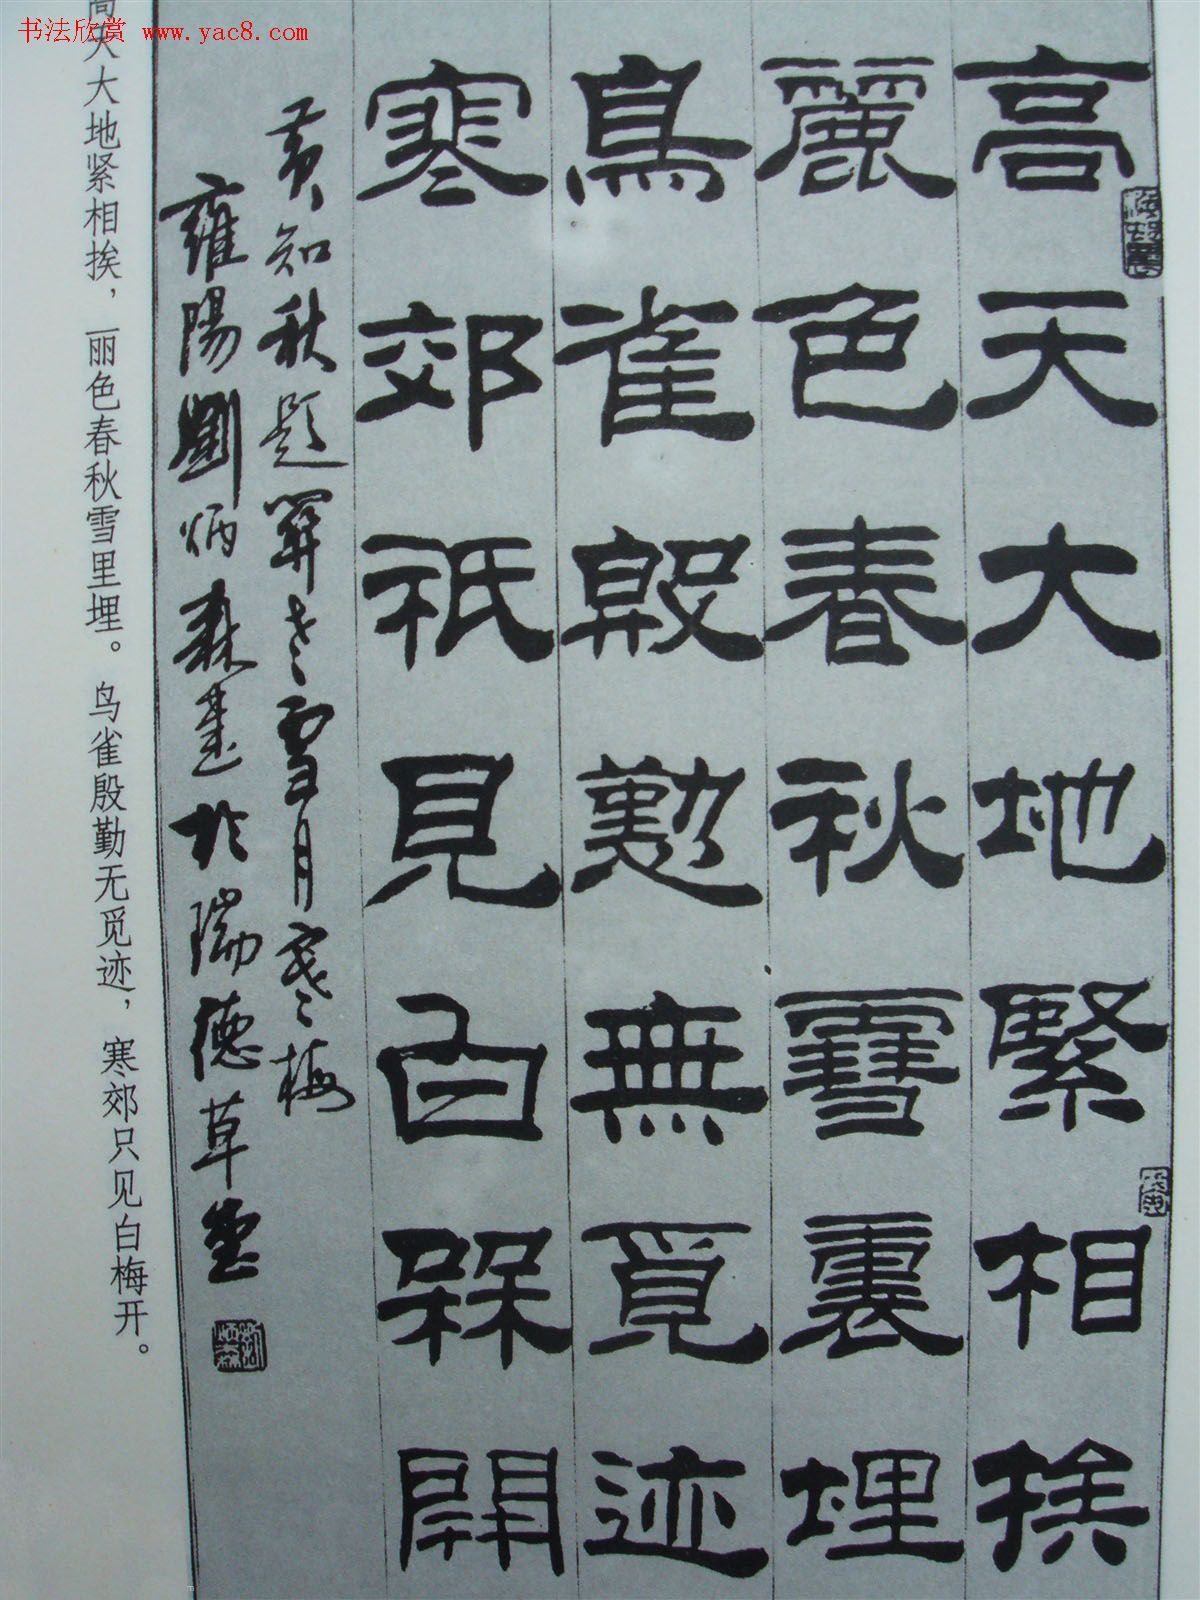 书法欣赏 www.yac8.com
高天大地紧相挨
麗色春秋雪裏埋
鳥雀殷懃無覓迹
寒郊祇見白槑開
黄知秋题关山雪月寒梅
雍陽劉炳森書於瑞德草堂
高天大地紧相挨，丽色春秋雪里埋。鸟雀殷勤无觅迹，寒郊只见白梅开。